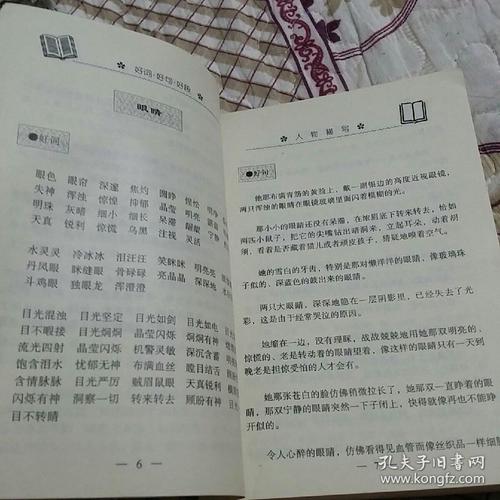 好词·好句·好段
眼睛
●好词
眼色 眼帘 深邃 焦灼 圆睁 惺忪
失神 浑浊 惊惶 抑郁 晶莹 明亮
明珠 灰暗 细小 细长 呆滞
天真 锐利 惊慌 乌黑 注视 灵活
水灵灵 冷冰冰 泪汪汪 笑眯眯 明亮亮
丹凤眼 眯缝眼 骨碌碌 亮晶晶 深深地
斗鸡眼 独眼龙 浑澄澄
目光混浊 目光坚定 目光如剑 目光如电
目不暇接 目光炯炯 晶莹闪烁 炯炯有神
流光四射 晶莹闪烁 机警灵敏 深沉含蓄
饱含泪水 忧郁无神 布满血丝 瞠目结舌
含情脉脉 目光严厉 贼眉鼠眼 天真锐利
闪烁有神 洞察一切 转来转去 顾盼有神
目不转睛
— 6 —
人物描写
●好句
他那布满青筋的黄脸上，戴一副银边的高度近视眼镜，
两只浑浊的眼睛在眼镜玻璃里面闪着模糊的光。
那小小的眼睛还没有呆滞，在浓眉底下转来转去，恰如
两匹小鼠子，把它的尖嘴钻出暗洞来，立起耳朵，动着胡
须，看看是否藏着猫儿或者顽皮孩子，猜疑地嗅着空气。
她的雪白的牙齿，特别是那对懒洋洋的眼睛，像玻璃珠
子似的、深蓝色的鼓出来的眼睛。
两只大眼睛，深深地隐在一层阴影里，已经失去了光
彩，这是由于经常哭泣的原因。
她缩在一边，没有理睬，战战兢兢地用她那双明亮的、
惊慌的、老是转动着的眼睛望着，像这样的眼睛只有一天到
晚老是担惊受怕的人才会有。
她那张苍白的脸仿佛稍微拉长了，她那双一直睁着的眼
睛，那双宁静的眼睛突然一下子闭上，快得就像再也不能睁
开似的。
令人心醉的眼睛，仿佛看得见血管而像丝织品一样细腻
孔夫子旧书网
www.kongfz.com